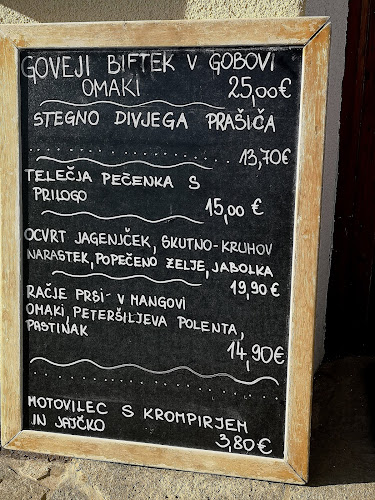 GOVEJI BIFTEK V GOBOVI
OMAKI 25,00€
STEGNO DIVJEGA PRAŠIČA
13,70€
TELEČJA PEČENKA S
PRILOGO
15,00 €
OCVRT JAGENJČEK, SKUTNO-KRUHOV
NARASTEK, POPEČENO ZELJE, JABOLKA
19,90 €
RAČJE PRSI V MANGOVI
OMAKI, PETERŠILJEVA POLENTA,
PASTINAK
14,90€
MOTOVILEC S KROMPIRJEM
IN JAJČKO
3,80€